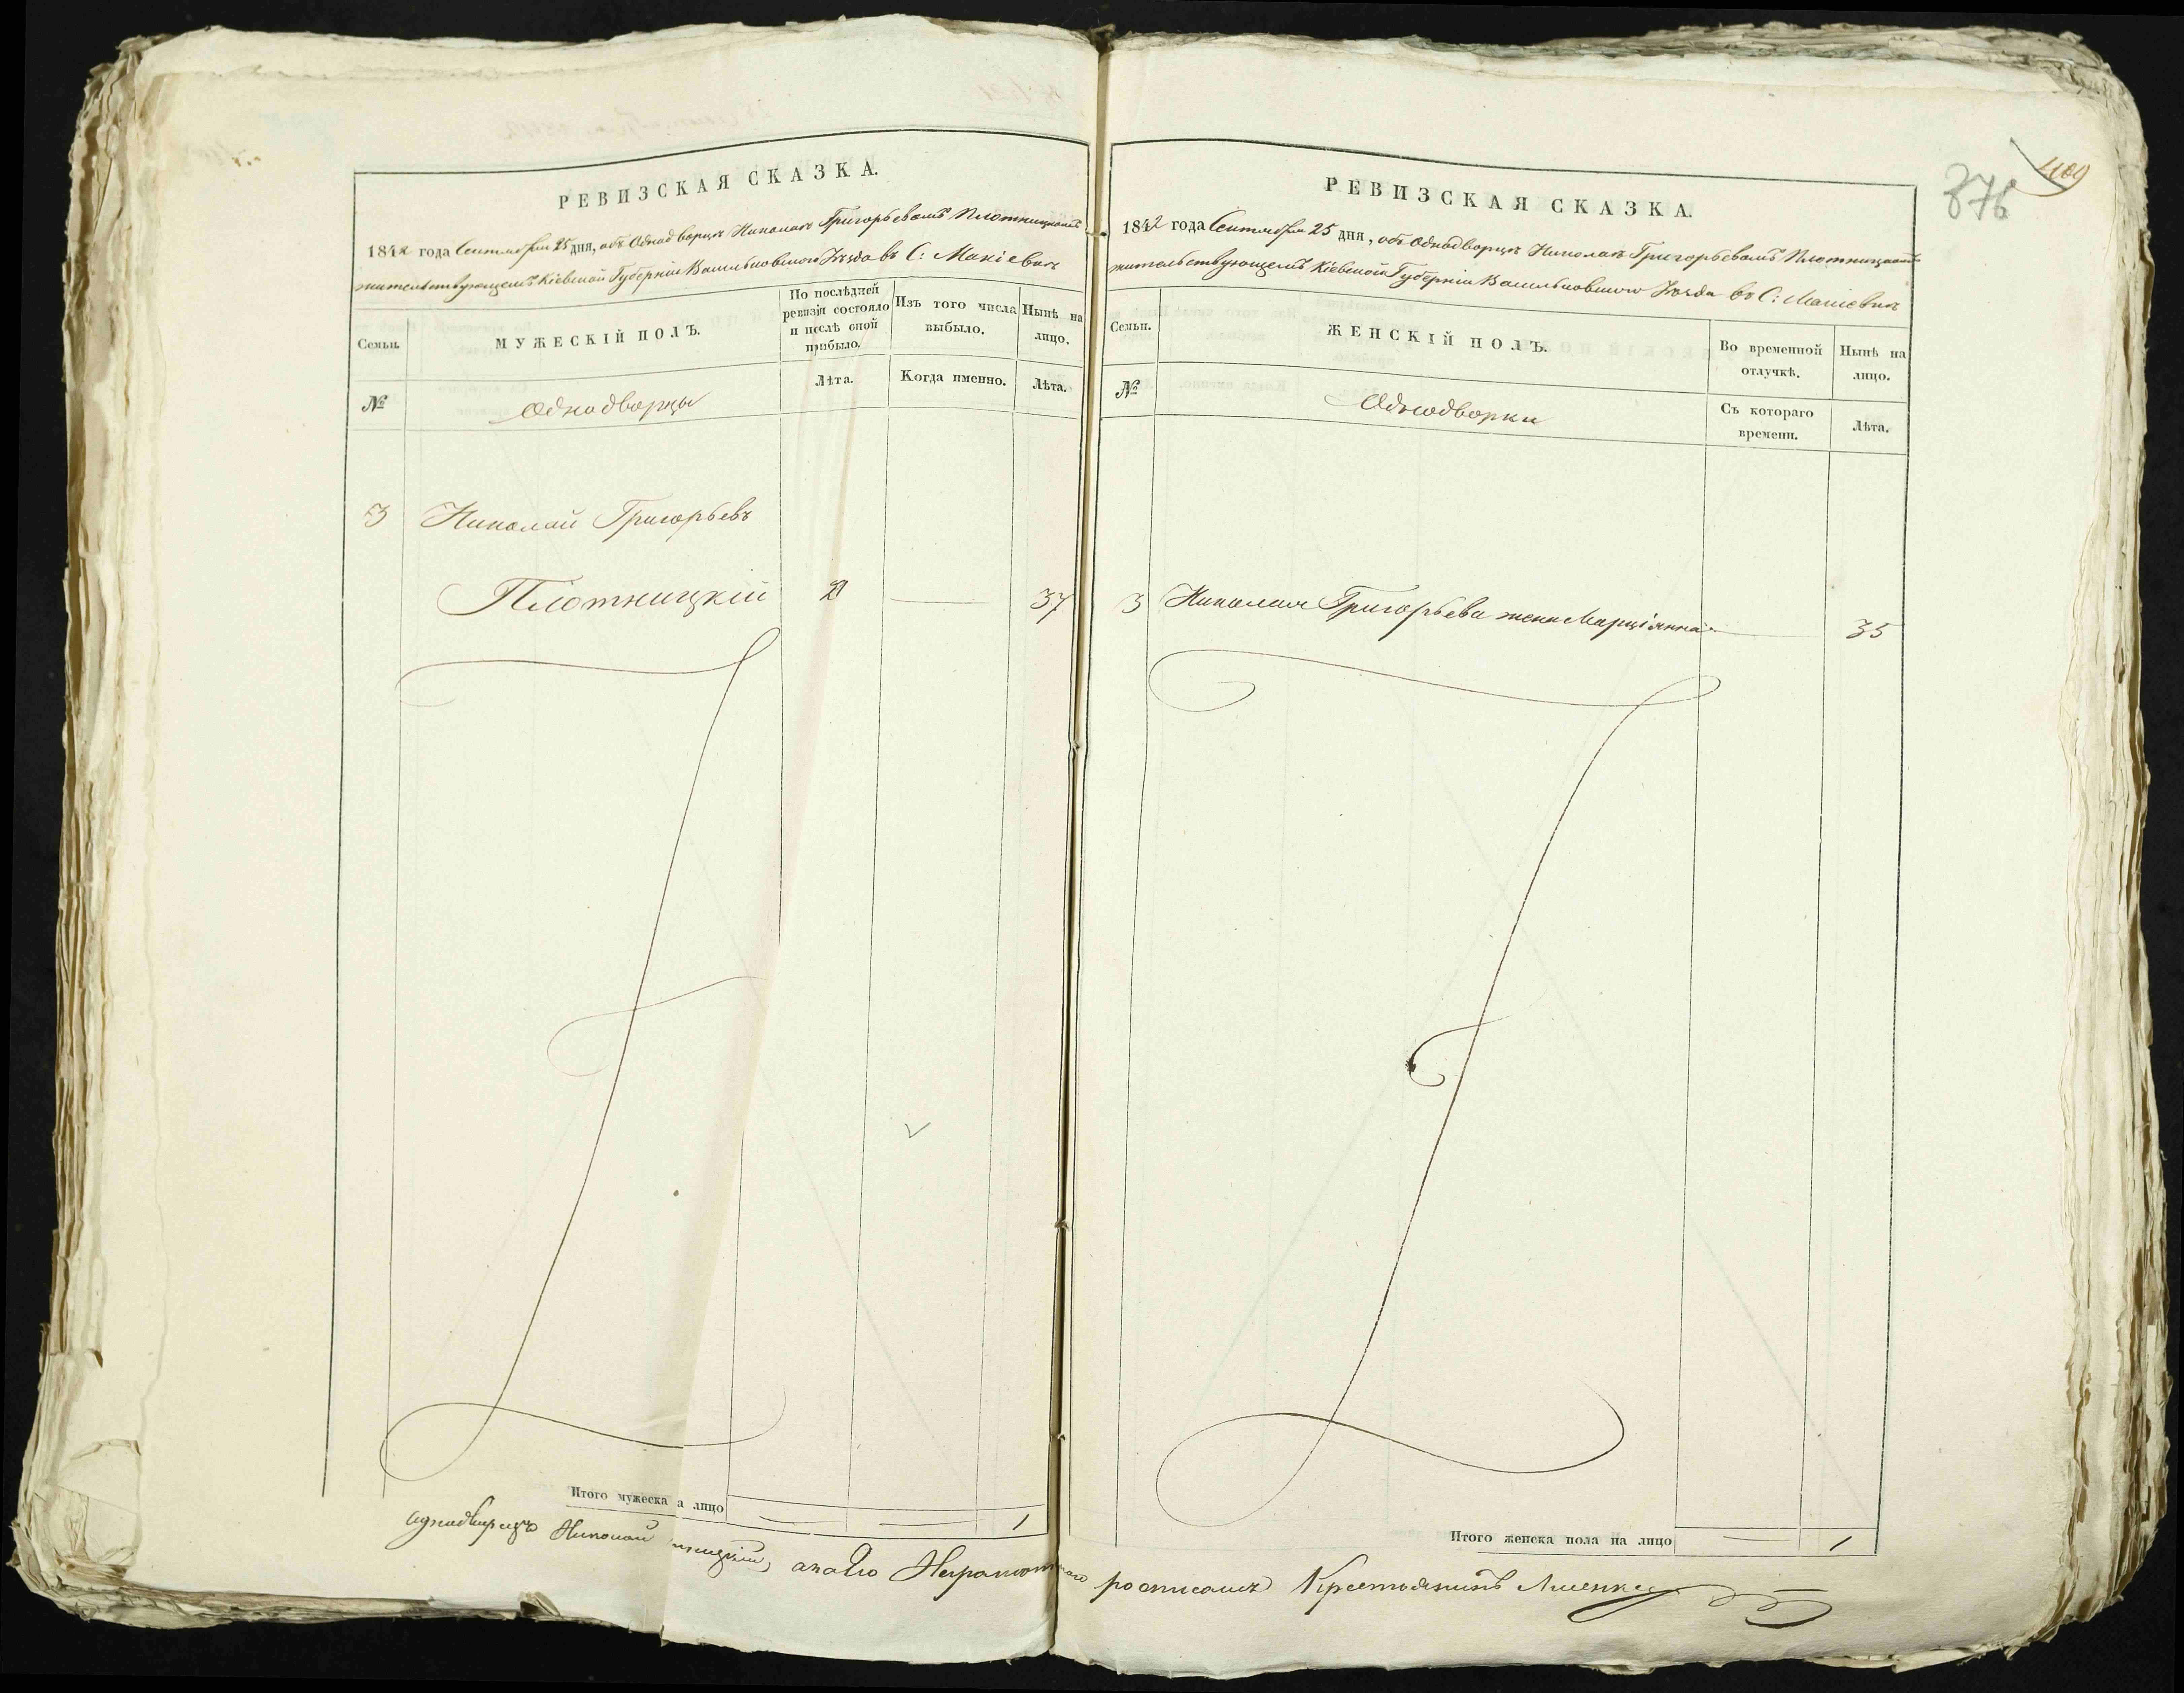 РЕВИЗСКАЯ СКАЗКА.
1842 года Сентября 25 дня, объ Однодворцѣ Николаѣ Григорьевомъ Плотницкомъ
жительствующемъ Кіевской Губерніи Васильковскаго Уѣзда въ С:
Семьи.
МУЖЕСКІЙ ПОЛЪ.
По послѣдней
ревизіи состояло
и послѣ оной
прибыло.
Изъ того числа
выбыло.
Нынѣ на
лицо.
№
Однодворцы
Лѣта.
Когда именно.
Лѣта.
3 Николай Григорьевъ
Плотницкій 37
Итого мужеска а лицо 1
Николай
РЕВИЗСКАЯ СКАЗКА.
376 409
1842 года Сентября 25 дня, объ Однодворцѣ Николаѣ Григорьевомъ Плотницкомъ
жительствующемъ Кіевской Губерніи Васильковскаго Уѣзда въ С:
Семьи.
ЖЕНСКІЙ ПОЛЪ.
Во временной
отлучкѣ.
Нынѣ на
лицо.
№
Однодворки
Съ котораго
времени.
Лѣта.
3 Николая Григорьева жена Марціянна 35
Итого женска пола на лицо 1
Крестьянинъ